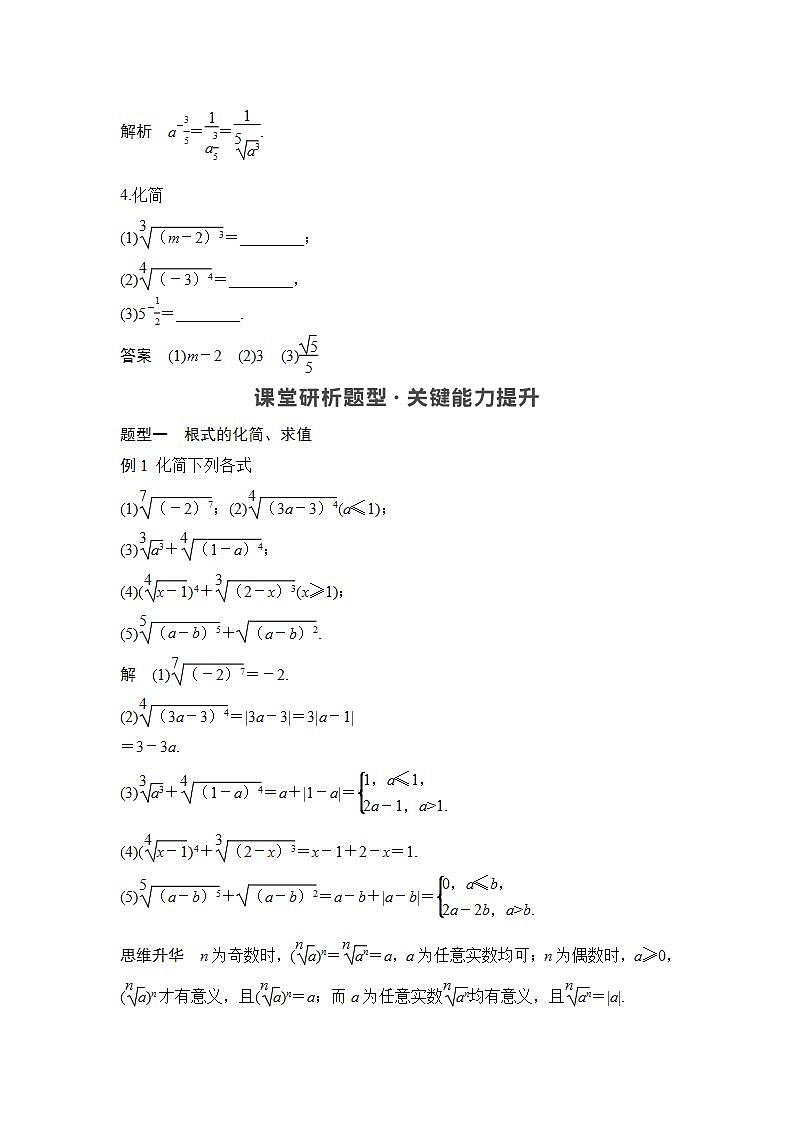 解析　a^{-\frac{3}{5}}=\frac{1}{a^{\frac{3}{5}}}=\frac{1}{\sqrt[5]{a^3}}.
4.化简
(1)\sqrt[3]{（m－2）^3}＝________；
(2)\sqrt[4]{（－3）^4}＝________，
(3)5^{-\frac{1}{2}}＝________.
答案　(1)m－2　(2)3　(3)\frac{\sqrt{5}}{5}
课堂研析题型·关键能力提升
题型一　根式的化简、求值
例1 化简下列各式
(1)\sqrt[7]{（－2）^7}；(2)\sqrt[4]{（3a－3）^4}(a≤1)；
(3)\sqrt[3]{a^3}＋\sqrt[4]{（1－a）^4}；
(4)(\sqrt[4]{x－1})^4＋\sqrt[3]{（2－x）^3}(x≥1)；
(5)\sqrt[5]{（a－b）^5}＋\sqrt{（a－b）^2}.
解　(1)\sqrt[7]{（－2）^7}＝－2.
(2)\sqrt[4]{（3a－3）^4}＝|3a－3|＝3|a－1|
＝3－3a.
(3)\sqrt[3]{a^3}＋\sqrt[4]{（1－a）^4}＝a＋|1－a|＝{1，a≤1，
2a－1，a>1.
(4)(\sqrt[4]{x－1})^4＋\sqrt[3]{（2－x）^3}＝x－1＋2－x＝1.
(5)\sqrt[5]{（a－b）^5}＋\sqrt{（a－b）^2}＝a－b＋|a－b|＝{0，a≤b，
2a－2b，a>b.
思维升华　n为奇数时，(\sqrt[n]{a})^n＝\sqrt[n]{a^n}＝a，a为任意实数均可；n为偶数时，a≥0，
(\sqrt[n]{a})^n才有意义，且(\sqrt[n]{a})^n＝a；而a为任意实数\sqrt[n]{a^n}均有意义，且\sqrt[n]{a^n}＝|a|.